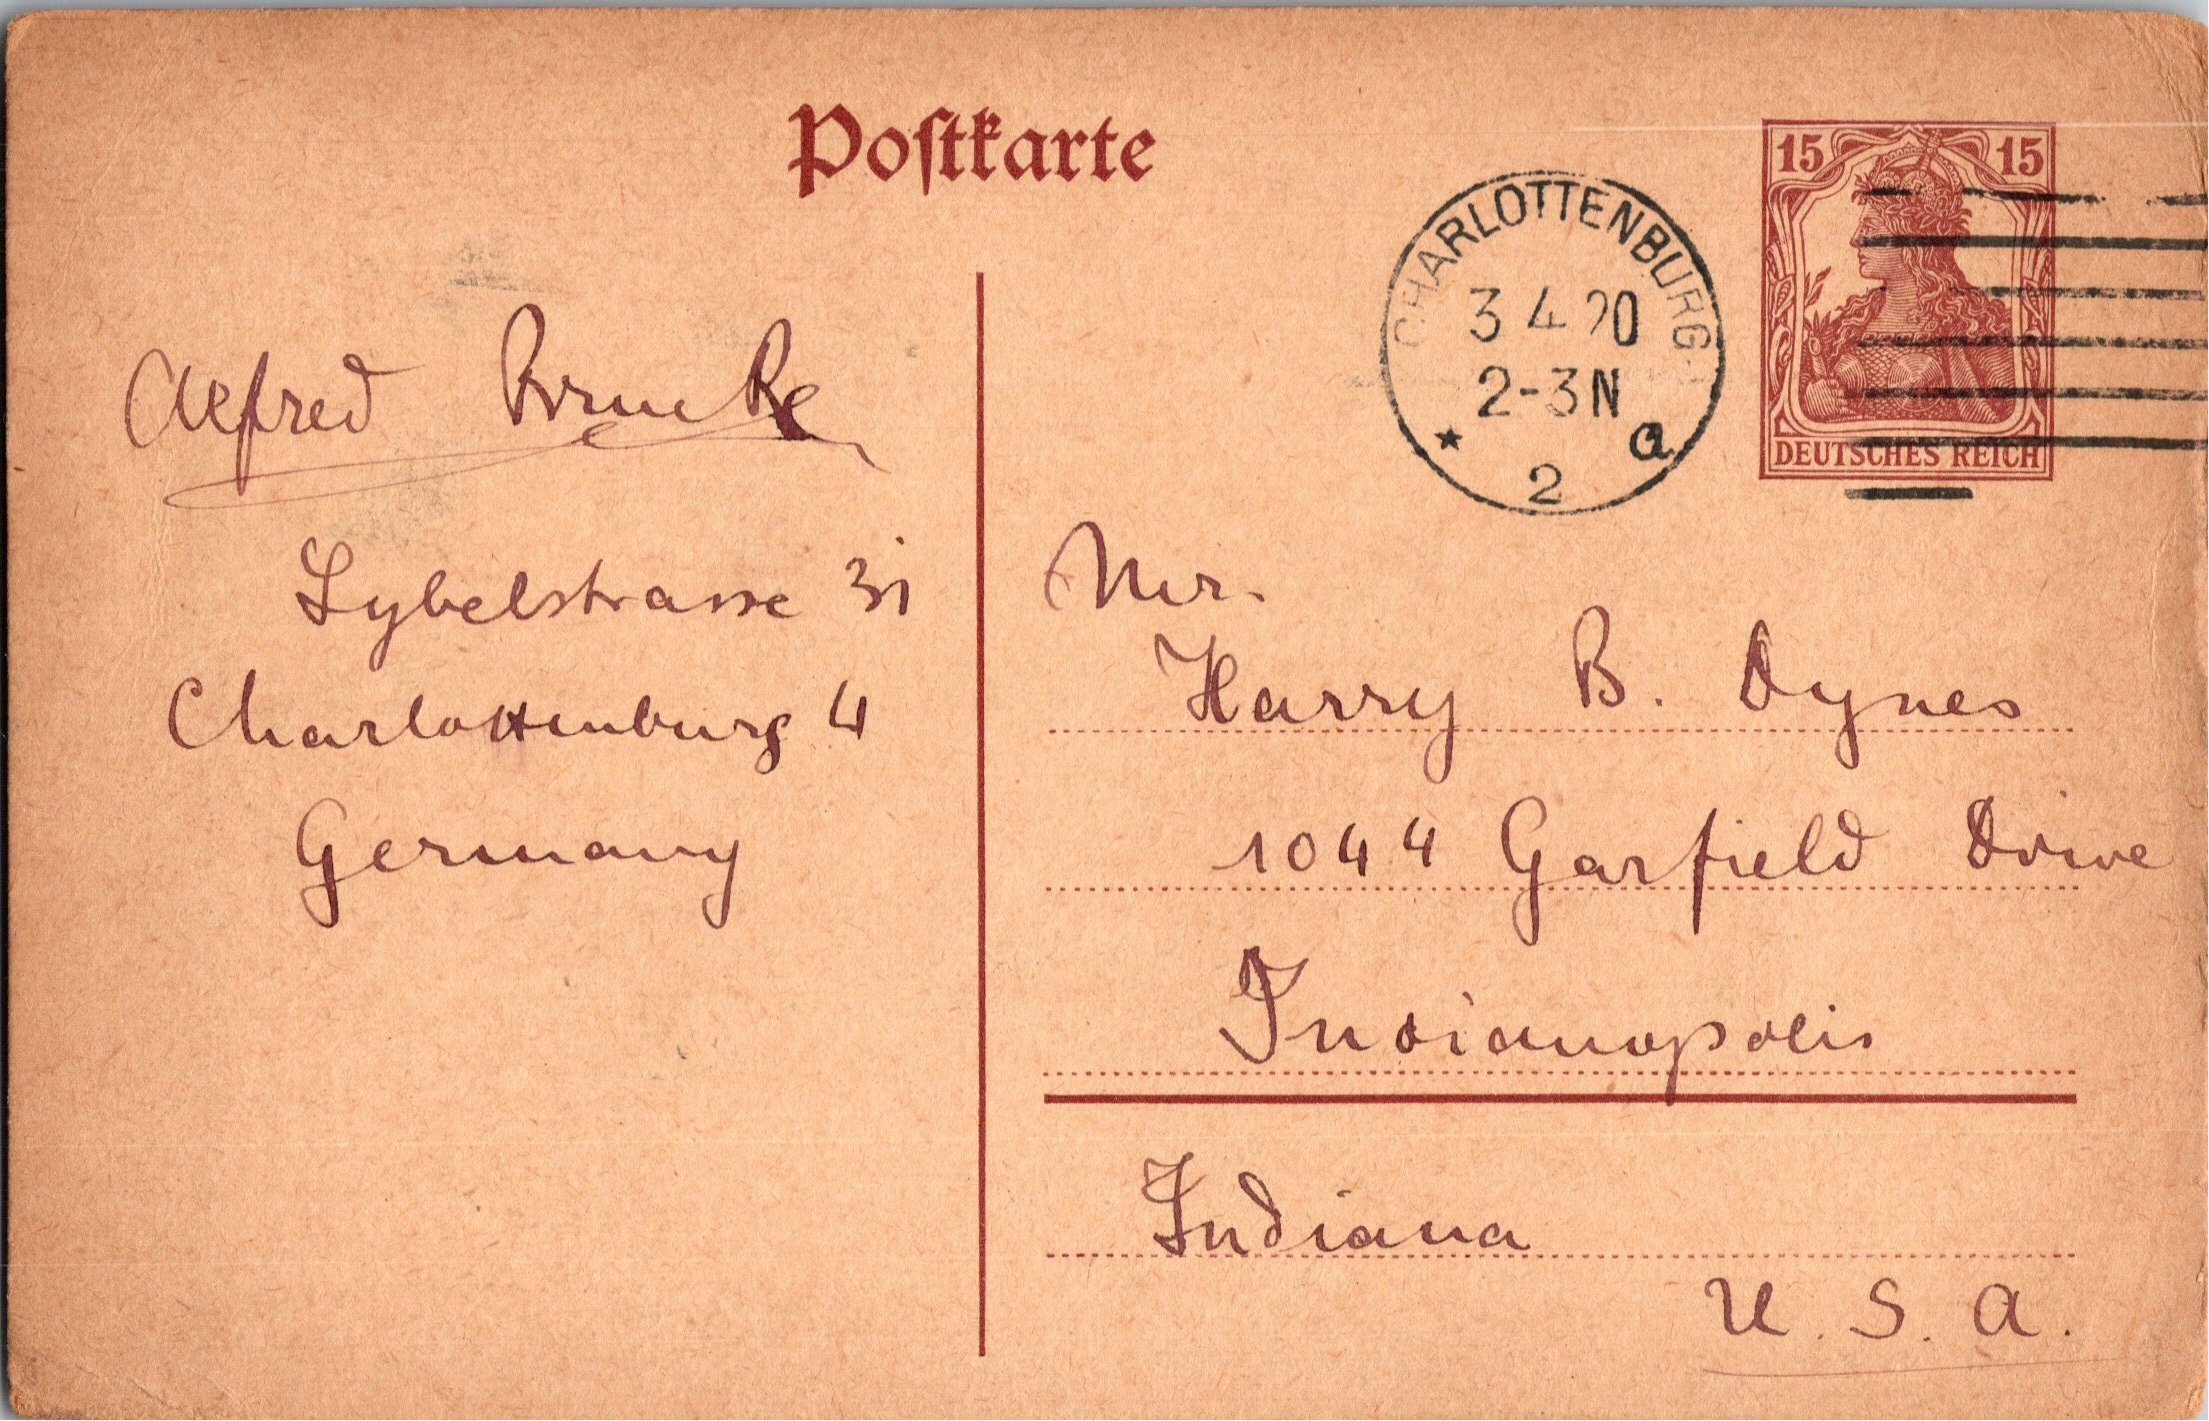 Postkarte
15 15
DEUTSCHES REICH
CHARLOTTENBURG
3 4 20
2-3N
* 2 a
Alfred
Lybelstrasse 31
Charlottenburg 4
Germany
Mr.
Harry B. Dynes
1044 Garfield Drive
Indianopolis
Indiana
U. S. A.